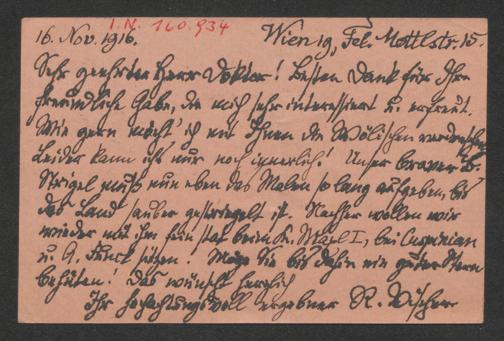 I.N. 160.934
16. Nov. 1916. Wien 19, Fel. Mottlstr. 15.
Sehr geehrter Herr Doktor! Besten Dank für Ihre
freundliche Gabe, die mich sehr interessiert u. erfreut.
Wie gern möcht' ich mit Ihnen die Wälischen verdreschen
Leider kann ich's nur noch innerlich! Unser braver B.
Strigel muß nun eben das Malen so lang aufgeben, bis
das Land sauber gestriegelt ist. Nachher wollen wir
wieder mit ihm beim K. Maxl I, bei Cuspinian
u. A. sitzen! Möge Sie bis dahin ein guter Stern
behüten! Das wünscht herzlich
Ihr hochachtungsvoll ergebner R. Wischer